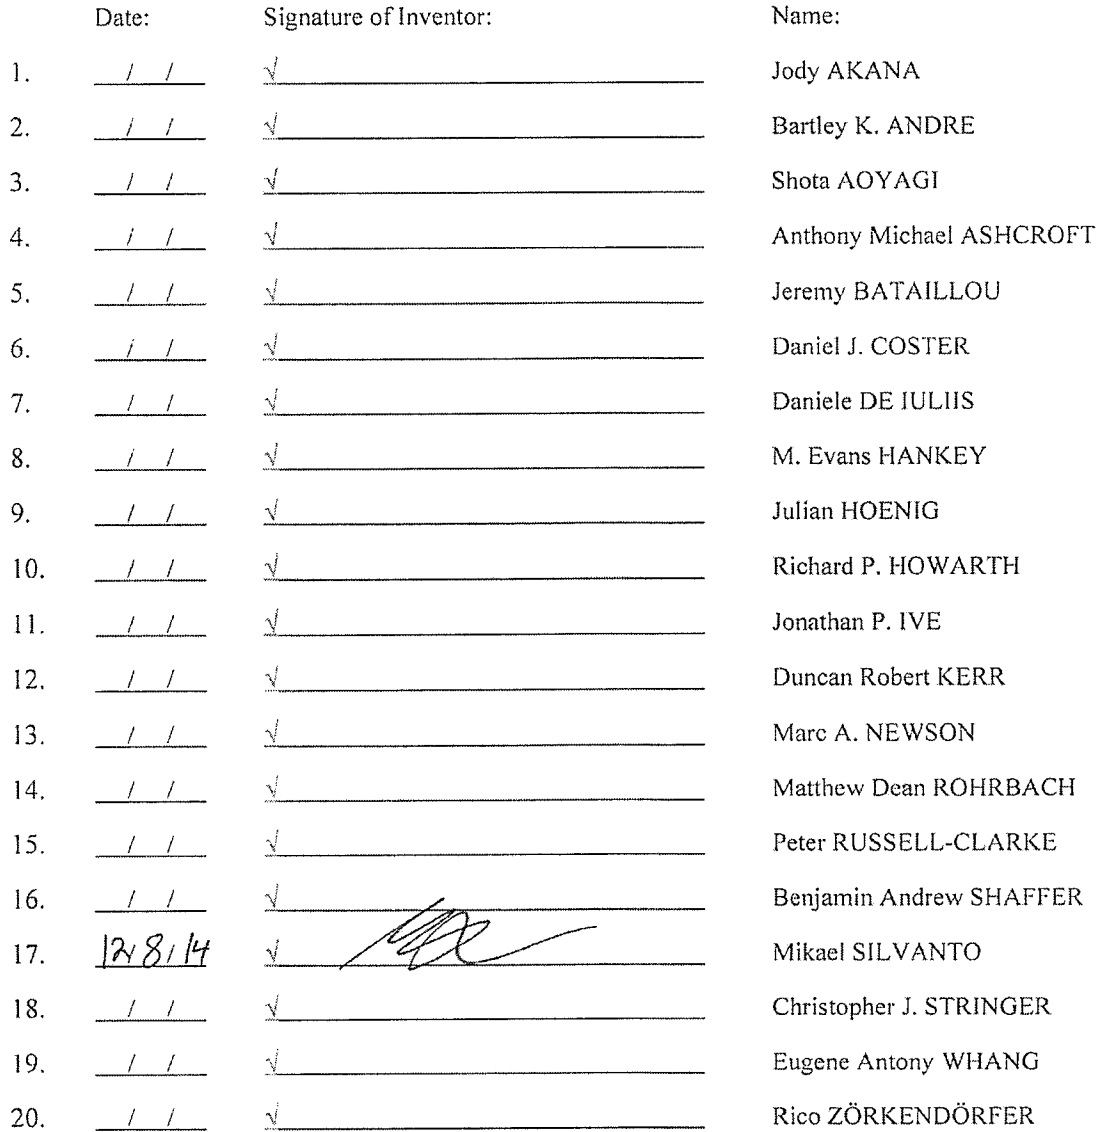 Date: Signature of Inventor: Name:
1. / / √ Jody AKANA
2. / / √ Bartley K. ANDRE
3. / / √ Shota AOYAGI
4. / / √ Anthony Michael ASHCROFT
5. / / √ Jeremy BATAILLOU
6. / / √ Daniel J. COSTER
7. / / √ Daniele DE IULIIS
8. / / √ M. Evans HANKEY
9. / / √ Julian HOENIG
10. / / √ Richard P. HOWARTH
11. / / √ Jonathan P. IVE
12. / / √ Duncan Robert KERR
13. / / √ Marc A. NEWSON
14. / / √ Matthew Dean ROHRBACH
15. / / √ Peter RUSSELL-CLARKE
16. / / √ Benjamin Andrew SHAFFER
17. 12/8/14 √ Mikael SILVANTO
18. / / √ Christopher J. STRINGER
19. / / √ Eugene Antony WHANG
20. / / √ Rico ZÖRKENDÖRFER